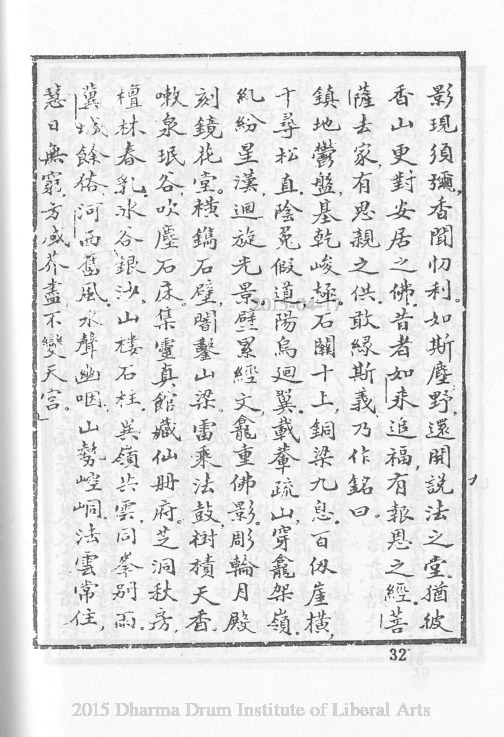 影現須彌,香聞忉利。如斯塵野,還開說法之堂。猶彼
香山更對安居之佛。昔者如来追福,有報恩之經。菩
薩去家,有思親之供。敢緣斯義乃作銘曰
鎮地鬱盤,基乾峻極。石關十上,銅梁九息。百仞崖橫,
千尋松直。陰兔假道,陽烏迴翼。載輂疏山,穿龕架嶺。
糺紛星漢,迴旋光景。壁累經文,龕重佛影。彫輪月殿
刻鏡花堂。橫鐫石壁,闇鑿山梁。雷乘法鼓,樹積天香。
嗽泉珉谷,吹塵石床。集靈真館,藏仙冊府。芝洞秋房,
檀林春乳。冰谷銀沙,山樓石柱。異嶺共雲,同峯別雨。
冀城餘俗,河西舊風。水聲幽咽,山勢崆峒。法雲常住,
慧日無窮。方域芥盡不變天宮」
32
2015 Dharma Drum Institute of Liberal Arts